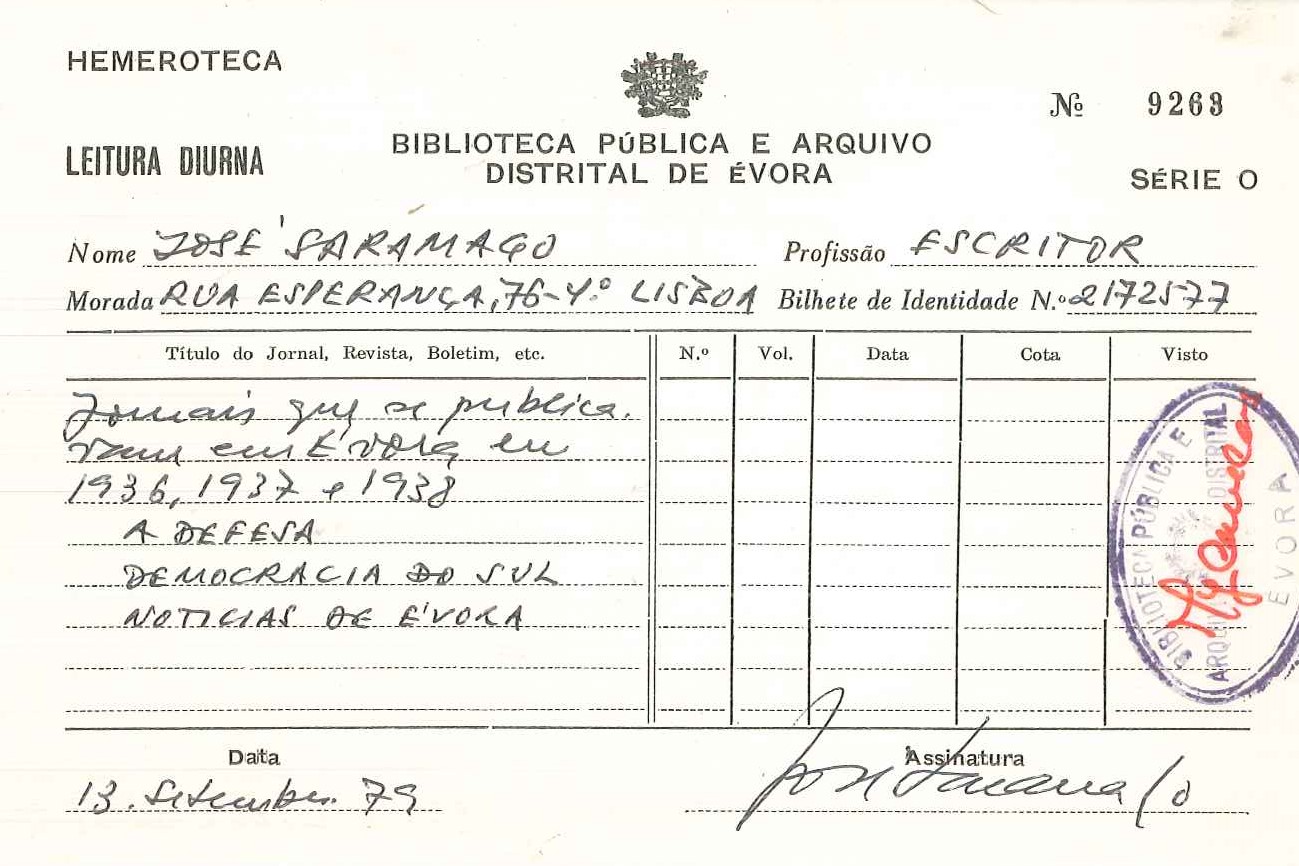 HEMEROTECA
Nº 9263
BIBLIOTECA PÚBLICA E ARQUIVO
DISTRITAL DE ÉVORA
LEITURA DIURNA
SÉRIE O
Nome JOSÉ SARAMAGO Profissão ESCRITOR
Morada RUA ESPERANÇA, 76-4.º LISBOA Bilhete de Identidade N.º 2172577
Título do Jornal, Revista, Boletim, etc. N.º Vol. Data Cota Visto
Jornais que se publica-
vam em Évora em
1936, 1937 e 1938
A DEFESA
DEMOCRACIA DO SUL
NOTICIAS DE ÉVORA
BIBLIOTECA PÚBLICA E
ARQUIVO DISTRITAL
ÉVORA
Data Assinatura
13. Setembro. 79 José Saramago